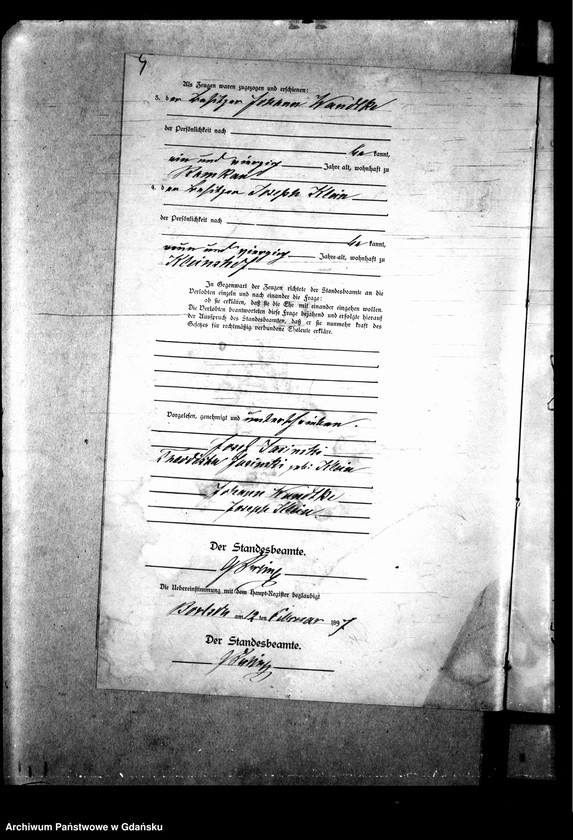 Als Zeugen waren zugezogen und erschienen:
3. der Besitzer Johann Kandtke
der Persönlichkeit nach
be kannt,
ein und vierzig Jahre alt, wohnhaft zu
4. der Besitzer Joseph Klein
der Persönlichkeit nach
be kannt,
neun und vierzig Jahre alt, wohnhaft zu
In Gegenwart der Zeugen richtete der Standesbeamte an die
Verlobten einzeln und nach einander die Frage:
ob sie erklären, daß sie die Ehe mit einander eingehen wollen.
Die Verlobten beantworteten diese Frage bejahend und erfolgte hierauf
der Ausspruch des Standesbeamten, daß er sie nunmehr kraft des
Gesetzes für rechtmäßig verbundene Eheleute erkläre.
Vorgelesen, genehmigt und unterschrieben.
Josef Jasinski
Jasinski geb. Klein
Johann Kandtke
Joseph Klein
Der Standesbeamte.
Die Uebereinstimmung mit dem Haupt-Register beglaubigt
am 12 ten Februar 1897
Der Standesbeamte.
Archiwum Państwowe w Gdańsku